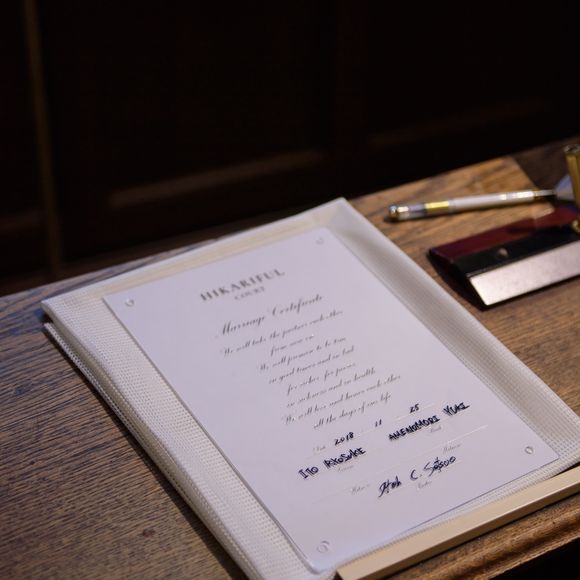 HIKARIFUL
COURT
Marriage Certificate
We will take the partner each other
from now on
We will promise to be true
in good times and in bad
for richer for poorer
in sickness and in health
We will love and honor each other
all the days of our life
Date 2018 11 25
ITO RYOSUKE AMENOMORI YUKI
Groom Bride
Witness
Witness C.